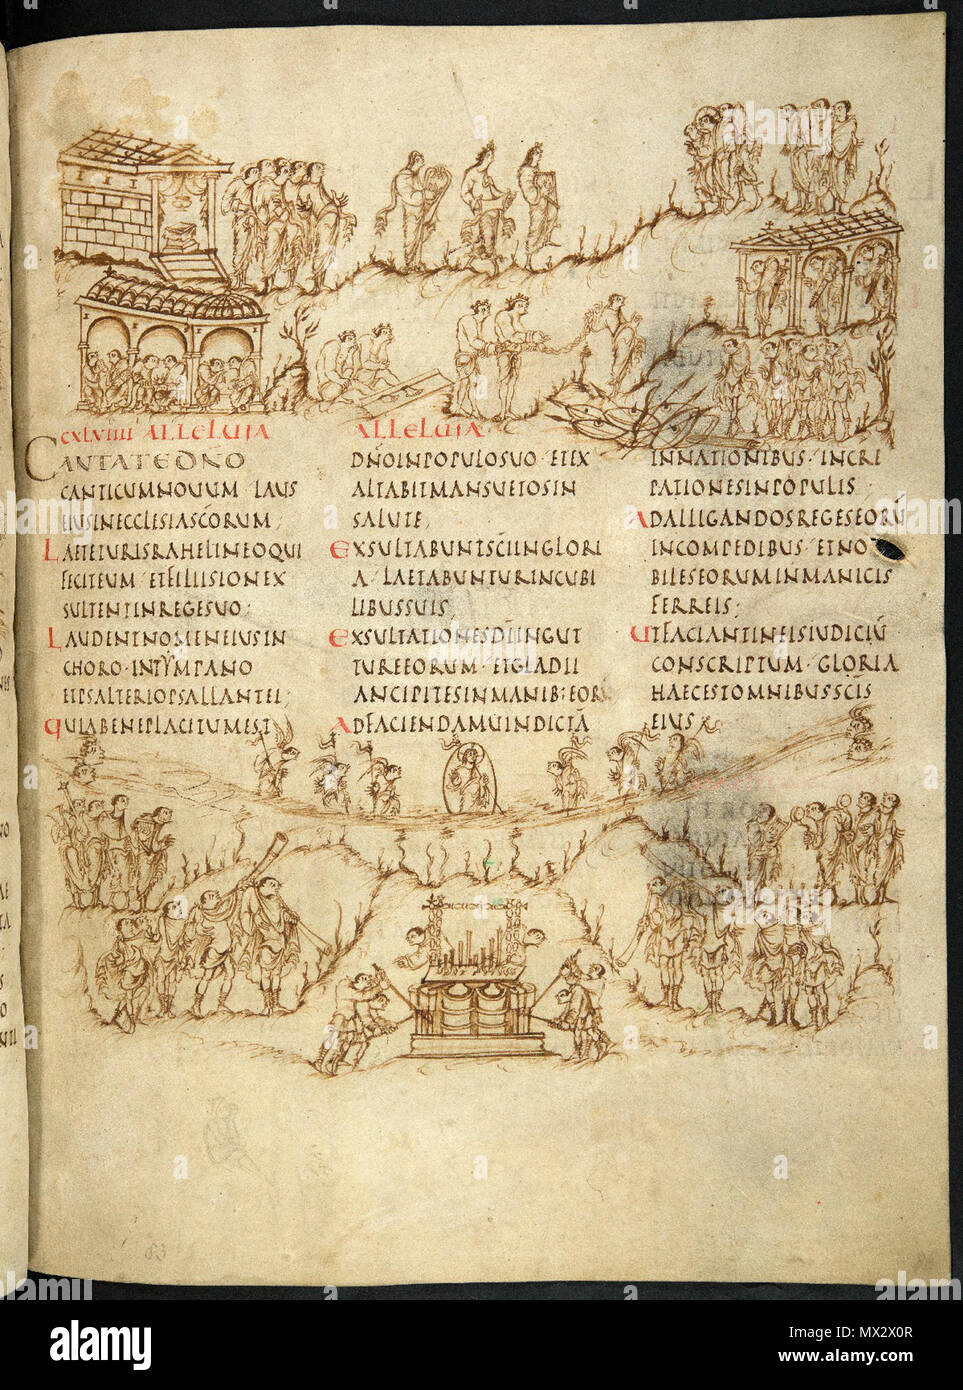 CXLVIIII ALLELUIA
CANTATE DN̄O
CANTICUM NOUUM LAUS
EIUS IN ECCLESIA SC̄ORUM;
LAETETUR ISRAHEL IN EO QUI
FECIT EUM ET FILII SION EX
SULTENT IN REGE SUO;
LAUDENT NOMEN EIUS IN
CHORO · IN TYMPANO
ET PSALTERIO PSALLANT EI;
QUIA BENEPLACITUM EST
ALLELUIA
DN̄O IN POPULO SUO · ET EX
ALTABIT MANSUETOS IN
SALUTE;
EXSULTABUNT SC̄I IN GLORI
A · LAETABUNTUR IN CUBI
LIBUS SUIS;
EXSULTATIONES DĪ IN GUT
TURE EORUM · ET GLADII
ANCIPITES IN MANIB; EOR̄
AD FACIENDAM UINDICTĀ
IN NATIONIBUS · INCRE
PATIONES IN POPULIS;
AD ALLIGANDOS REGES EORŪ
IN COMPEDIBUS · ET NO
BILES EORUM IN MANICIS
FERREIS;
UT FACIANT IN EIS IUDICIŪ
CONSCRIPTUM · GLORIA
HAEC EST OMNIBUS SC̄IS
EIUS
83
alamy
Image ID: MX2X0R
www.alamy.com